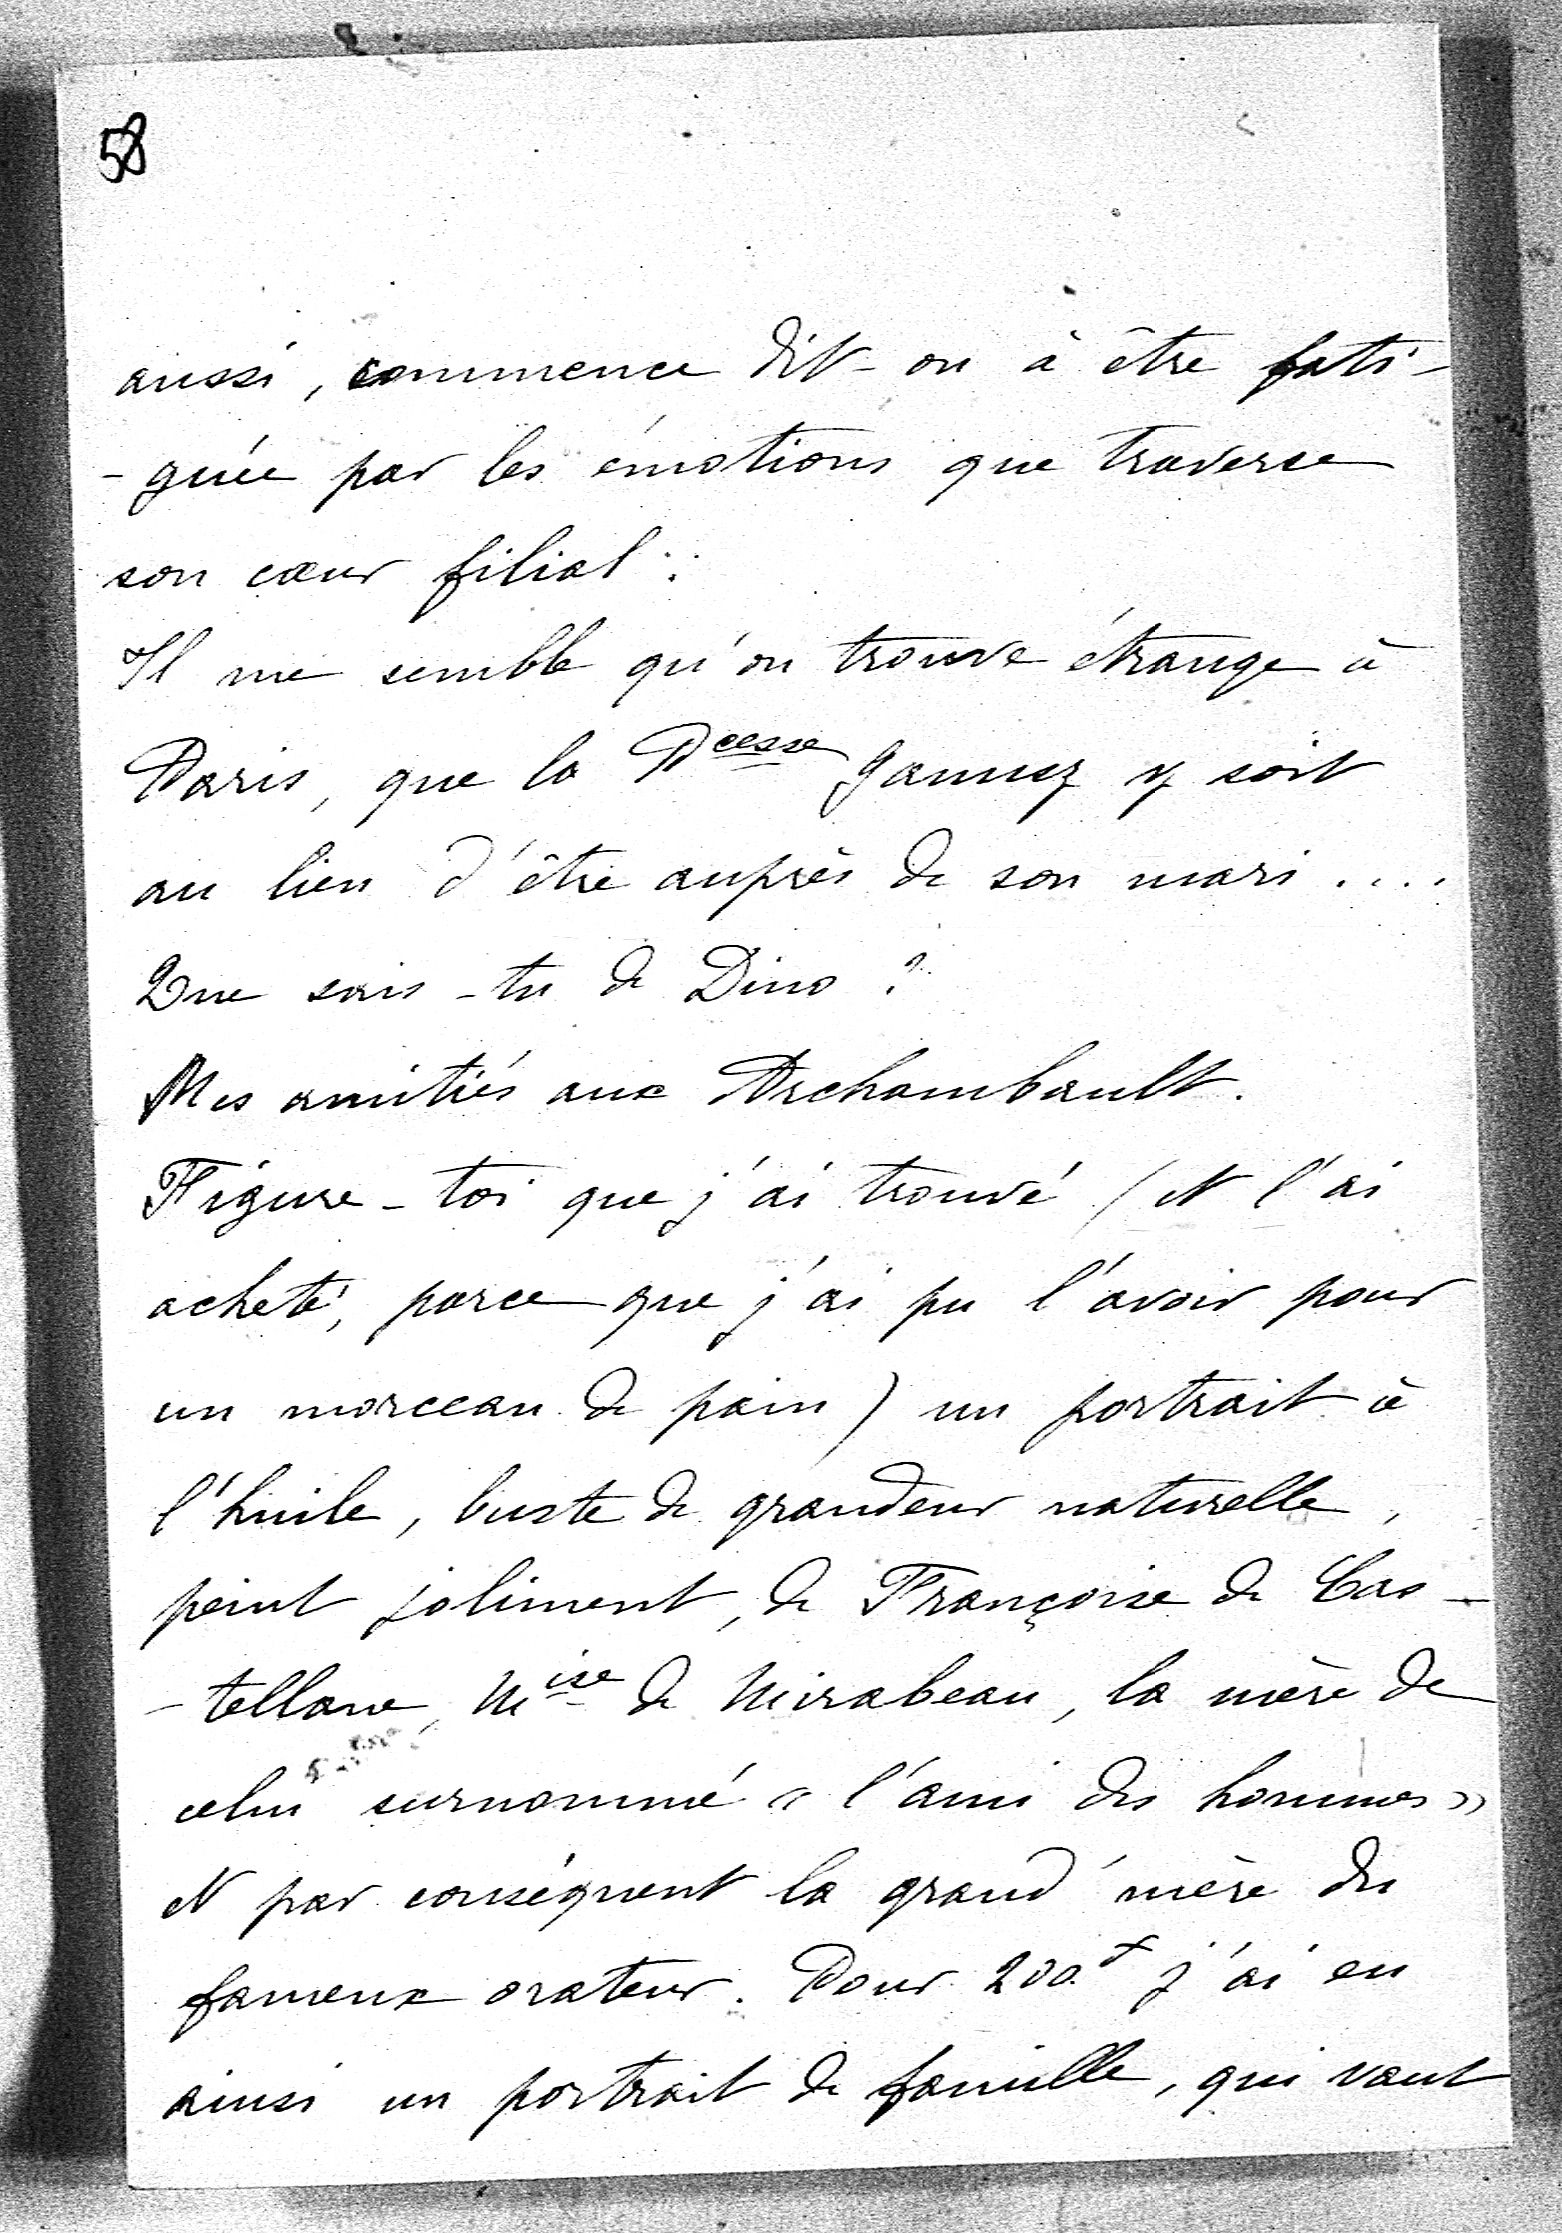 58
aussi, commence dit-on à être fati-
-guée par les émotions que traverse
son cœur filial..
Il me semble qu'on trouve étrange à
Paris, que la Pcesse Janusz y soit
au lieu d'être auprès de son mari....
Que sais-tu de Dino ?
Mes amitiés aux Archambault.
Figure-toi que j'ai trouvé (et l'ai
acheté, parce que j'ai pu l'avoir pour
un morceau de pain) un portrait à
l'huile, buste de grandeur naturelle,
peint joliment, de Françoise de Cas-
-tellane, Mise de Mirabeau, la mère de
celui surnommé « l'ami des hommes »
et par conséquent la grand'mère du
fameux orateur. Pour 200.f j'ai eu
ainsi un portrait de famille, qui vaut